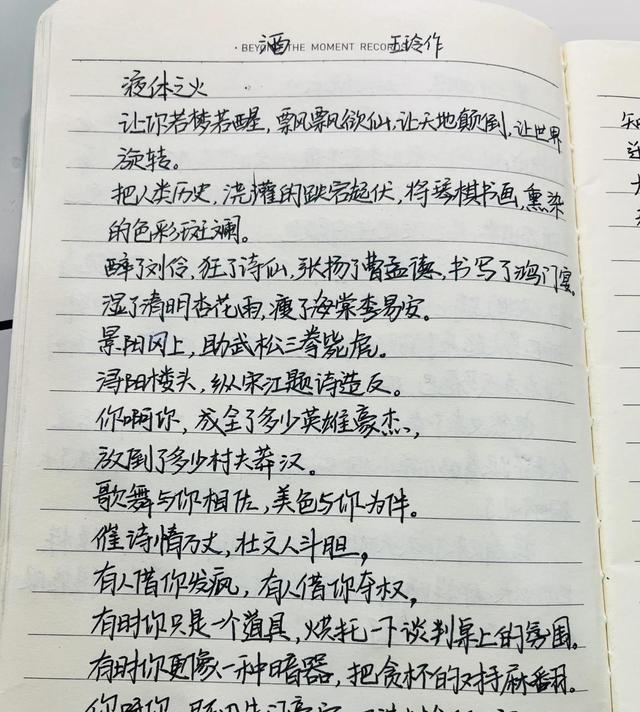 酒 王玲作
· BEYOND THE MOMENT RECORDS ·
液体之火
让你若梦若醒,飘飘欲仙,让天地颠倒,让世界
旋转。
把人类历史,浇灌的跌宕起伏,将琴棋书画,熏染
的色彩斑斓。
醉了刘伶,狂了诗仙,张扬了曹孟德,书写了鸿门宴。
湿了清明杏花雨,瘦了海棠李易安。
景阳冈上,助武松三拳毙虎。
浔阳楼头,纵宋江题诗造反。
你啊你,成全了多少英雄豪杰,
放倒了多少村夫莽汉。
歌舞与你相佐,美色与你为伴。
催诗情万丈,壮文人斗胆,
有人借你发疯,有人借你夺权,
有时你只是一个道具,烘托一下谈判桌上的氛围。
有时你更像一种暗器,把贪杯的对手麻翻。
你啊你,